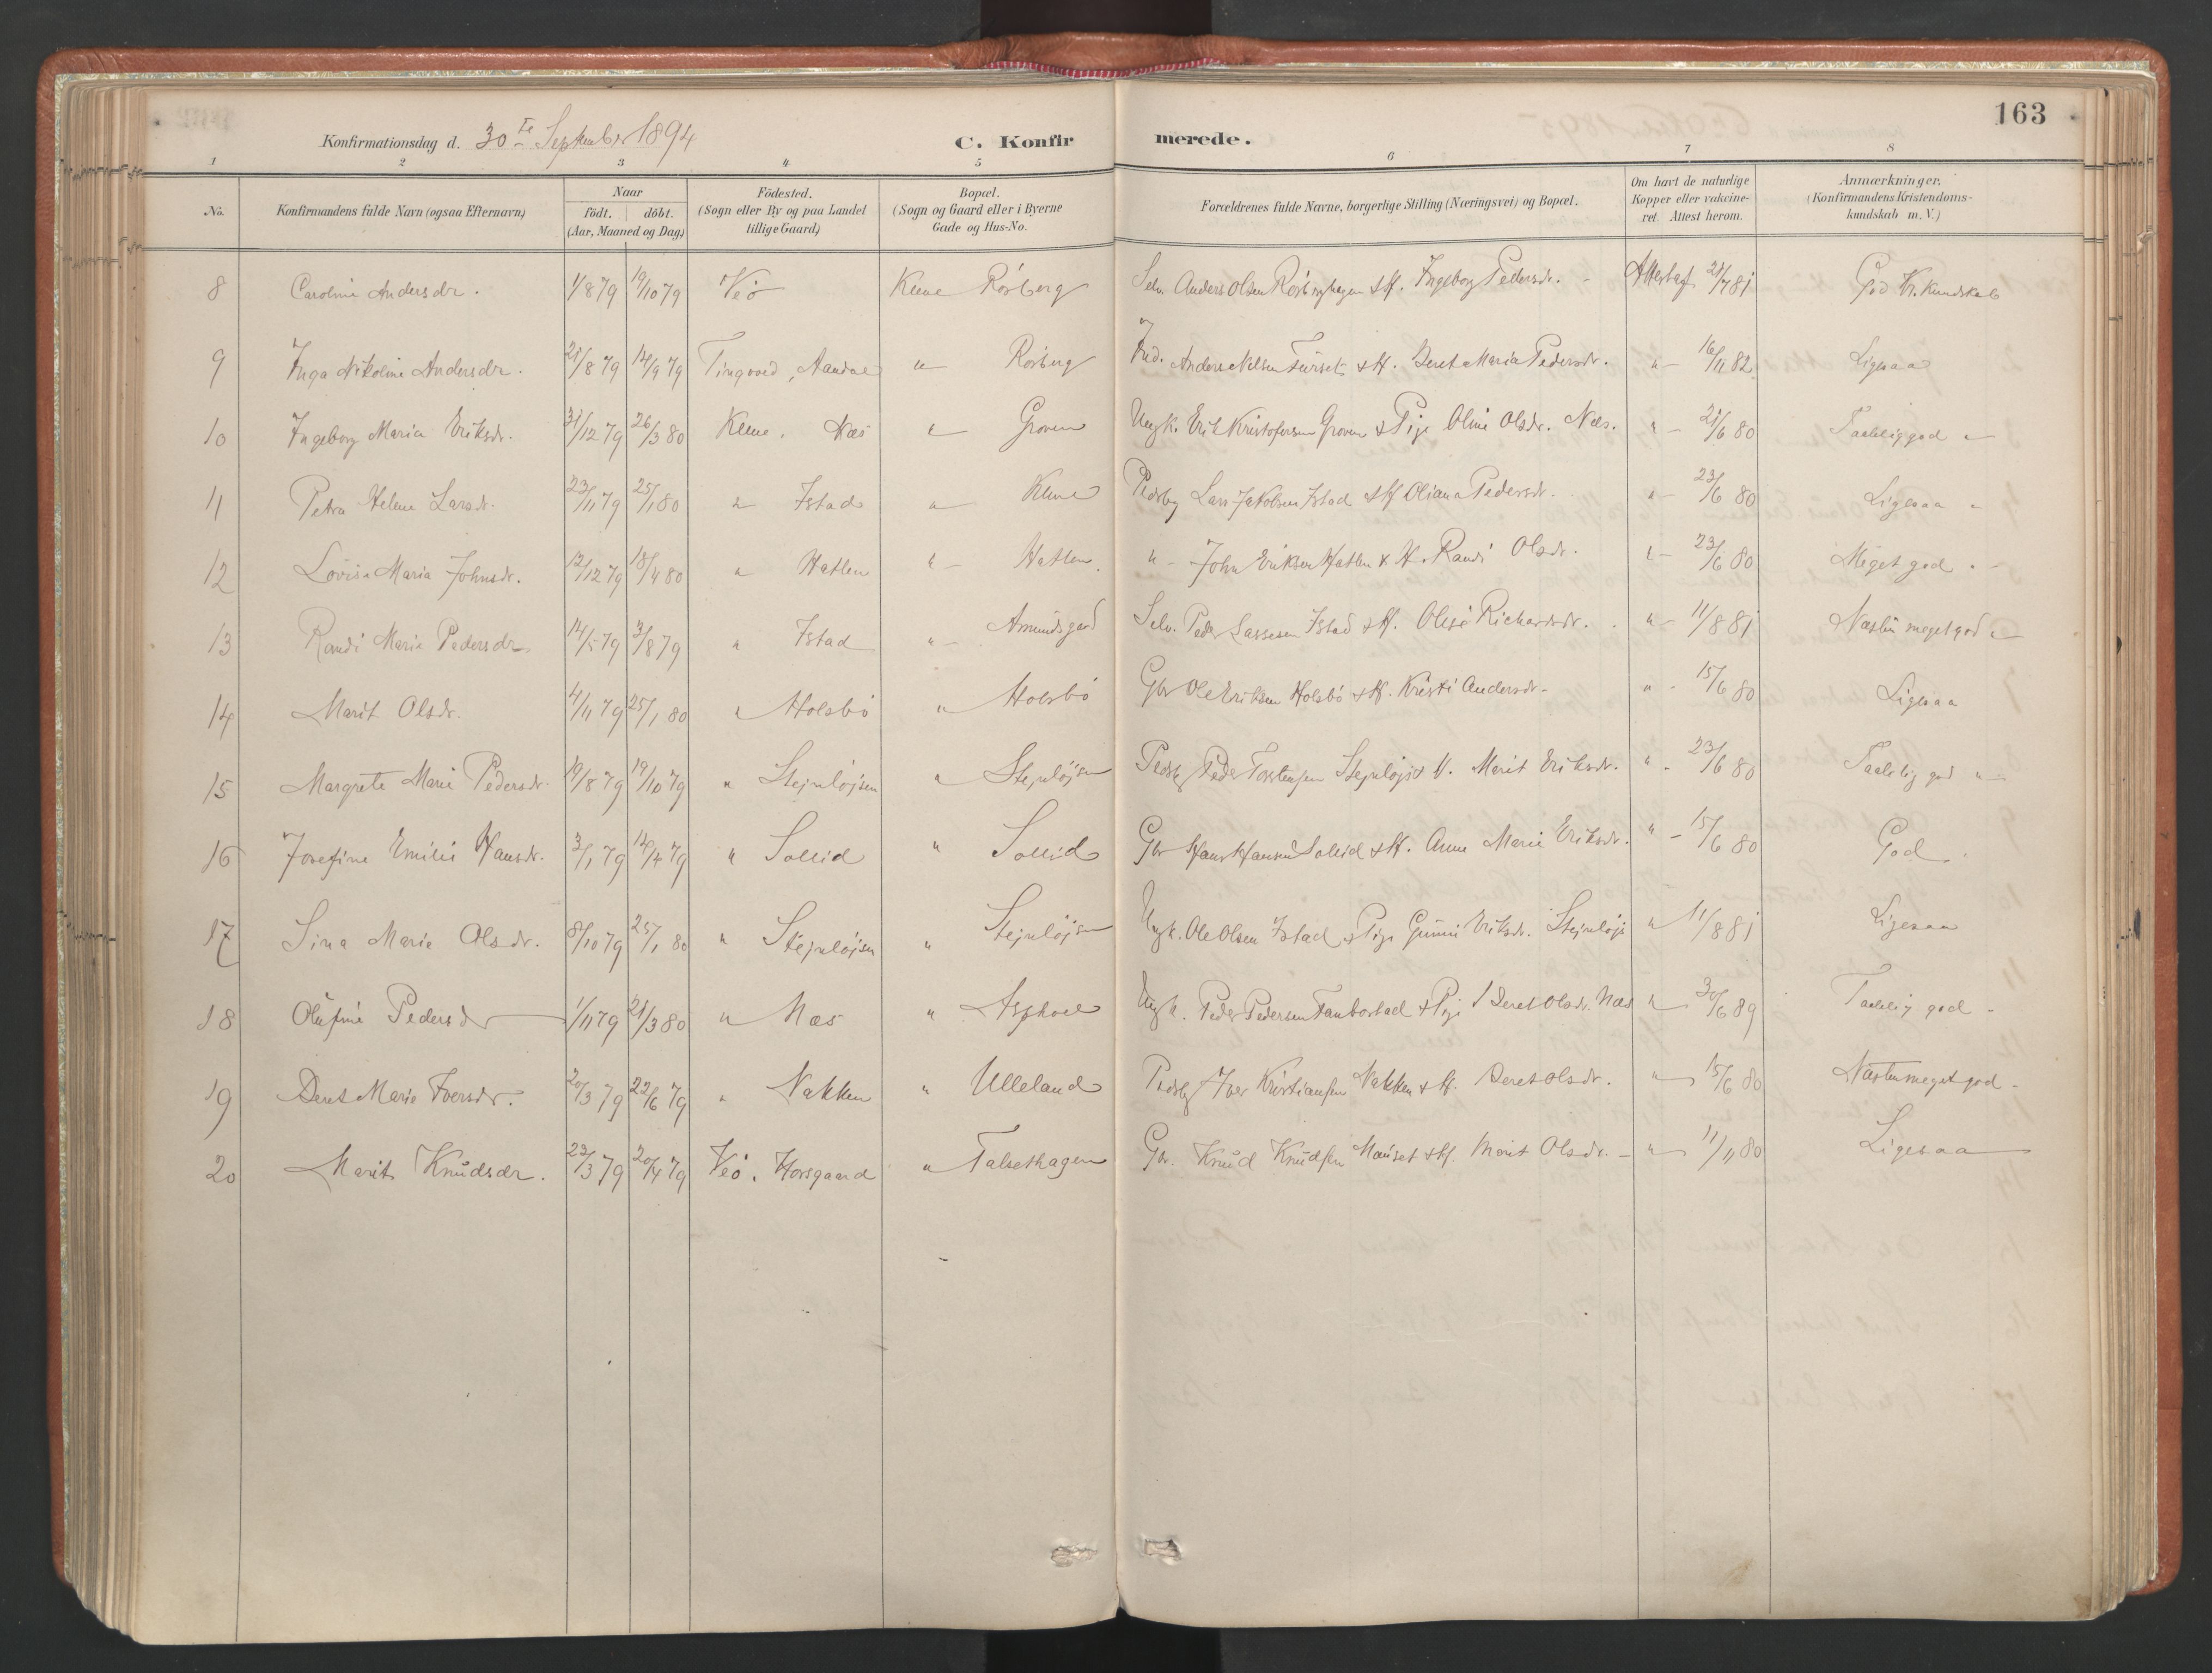 163
Konfirmationsdag d. 30te September 1894 C. Konfirmerede.
1 2 3 4 5 6 7 8
No. Konfirmandens fulde Navn (ogsaa Efternavn) Naar födt. döbt. (Aar, Maaned og Dag.) Födested. (Sogn eller By og paa Landet tillige Gaard) Bopæl. (Sogn og Gaard eller i Byerne Gade og Hus-No. Forældrenes fulde Navne, borgerlige Stilling (Næringsvei) og Bopæl. Om havt de naturlige Kopper eller vakcineret. Attest herom. Anmærkninger, (Konfirmandens Kristendomskundskab m. V.)
8 Caroline Andersdr. 1/8 79 19/10 79 Veö Kleve Rösberg Selv. Anders Olsen Rösberghagen & H. Ingeborg Pedersdr. - Attest af 21/7 81 God Kr. Kundskab
9 Inga Nikoline Andersdr. 21/8 79 14/9 79 Tingvold, " Rösberg Ind. Anders Nilsen Furset & H. Beret Maria Pedersdr. " - 16/11 82 Ligesaa
10 Ingeborg Maria Eriksdr. 31/12 79 26/3 80 Kleve, Næs " Groven Ungk. Erik Kristofersen Groven & Pige Oline Olsdr. Næs. " - 21/6 80 Taalelig god "
11 Petra Helene Larsdr. 23/11 79 25/1 80 " Istad " Kleve Pladsbg Lars Jakobsen Istad & H Oliana Pedersdr. " - 23/6 80 Ligesaa "
12 Lovisa Maria Johnsdr. 12/12 79 18/4 80 " Hatlen " Hatlen. " - John Eriksen Hatlen & H. Randi Olsdr. " - 23/6 80 Meget god " -
13 Randi Marie Pedersdr 14/5 79 3/8 79 " Istad " - Amundsgard Selv. Peder Lassesen Istad & H. Olise Richardsdr. " - 11/8 81 Næsten meget god "
14 Marit Olsdr. 4/11 79 25/1 80 " Holsbö " Holsbö Gbr Ole Eriksen Holsbö & H. Kristi Andersdr. " - 15/6 80 Ligesaa
15 Margrete Marie Pedersdr. 19/8 79 19/10 79 " Stejnlöjsen " Stejnlöjsen Pladsbg Peder Torstensen Stejnlöjs & H. Marit Eriksdr. " - 23/6 80 Taalelig god "
16 Josefine Emilie Hansdr. 3/1 79 14/4 79 " Sollid " Sollid Gbr Hans Hansen Sollid & H. Anne Marie Eriksdr. " - 15/6 80 God
17 Sina Marie Olsdr. 8/10 79 25/1 80 " Stejnlöjsen " Stejnlöjsen Ungk. Ole Olsen Istad & Pige Eriksdr. Stejnlöjs " 11/8 81 Ligesaa
18 Olufine Pedersdr 1/11 79 21/3 80 " Næs " Ungk. Peder Pedersen & Pige Beret Olsdr. Næs " 30/6 89 Taalelig god -
19 Beret Marie Iversdr. 20/3 79 22/6 79 " Nakken " Ulleland Pladsbg Iver Kristiansen Nakken & H. Beret Olsdr. " 15/6 80 Næsten meget god -
20 Marit Knudsdr. 22/3 79 20/4 79 Veö, Horsgaard " Talsethagen Gbr. Knud Knudsen Mauset & H. Marit Olsdr. - " 11/11 80 Ligesaa